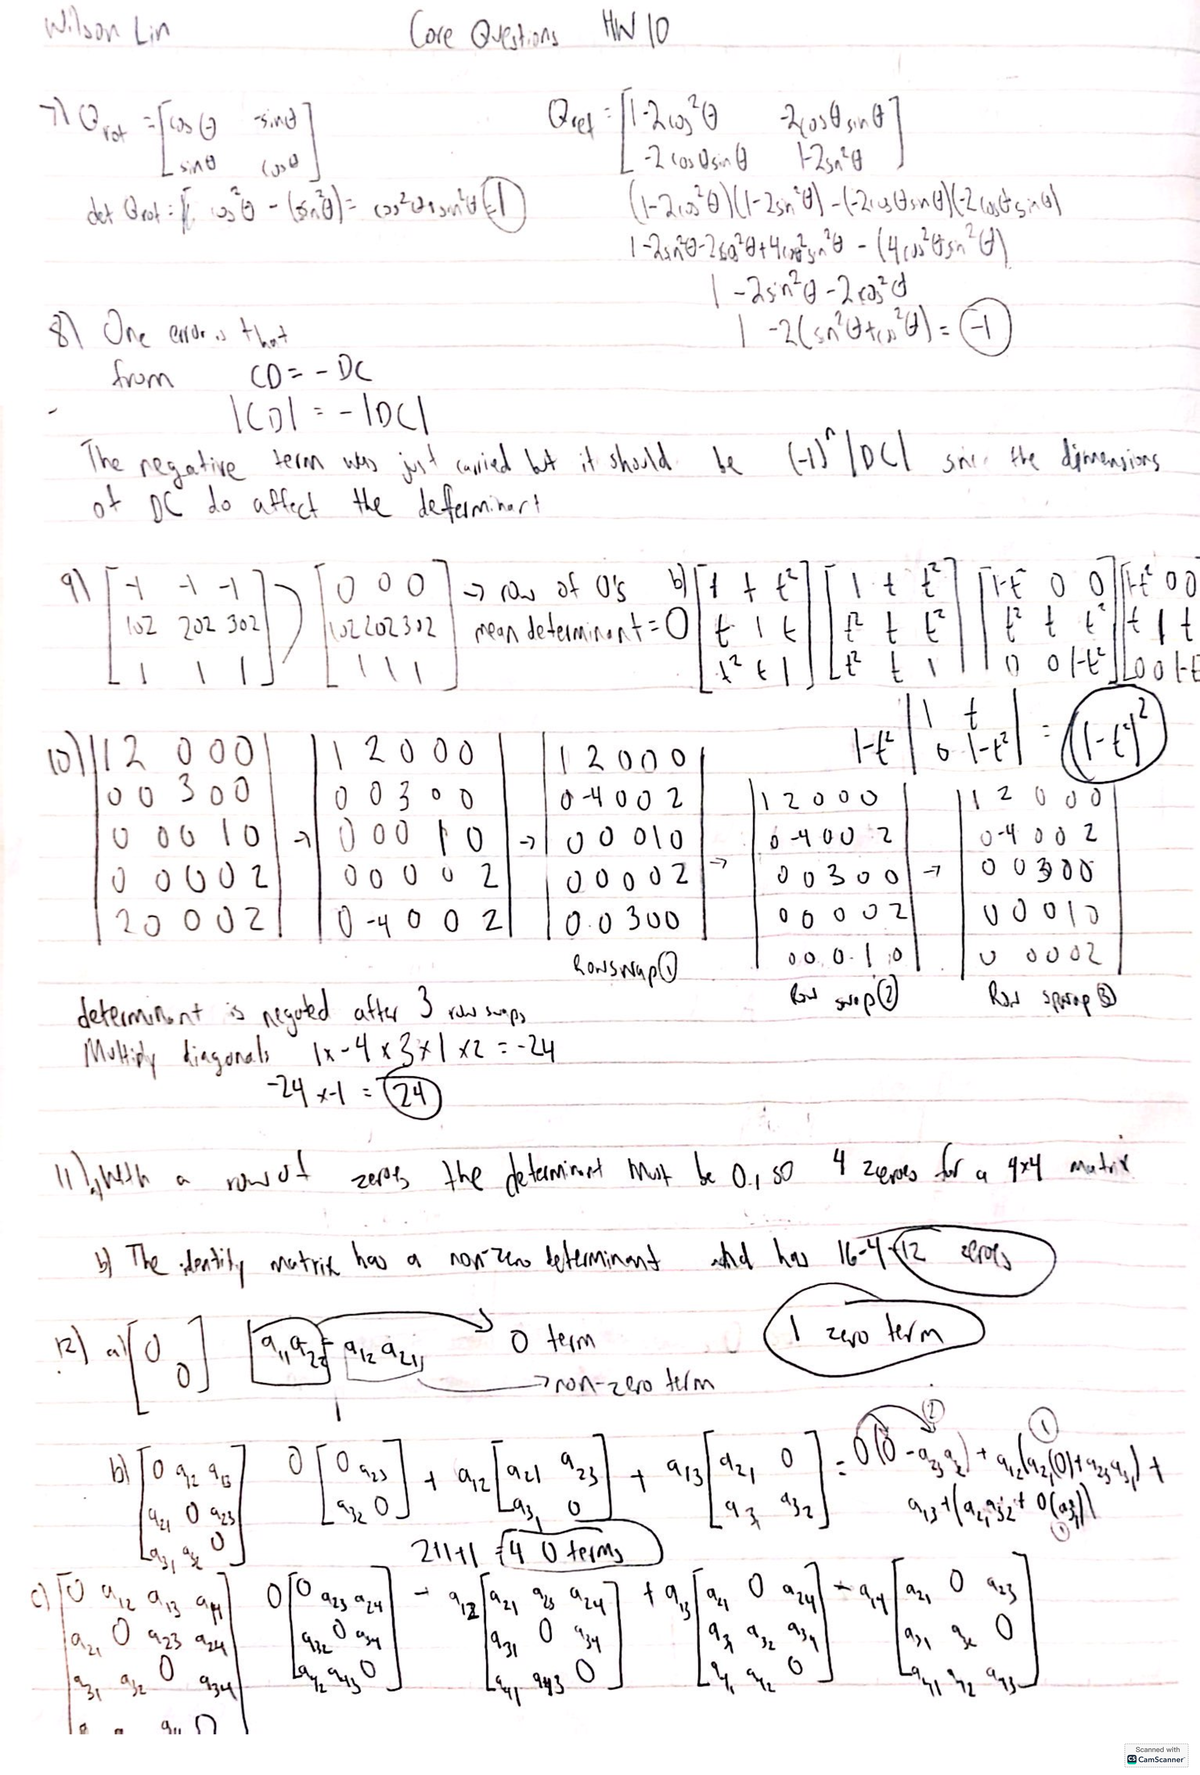 Wilson Lin Core Questions HW 10
7) Q_rot = [cosθ -sinθ; sinθ cosθ]
det Q_rot = cos²θ - (-sin²θ) = cos²θ + sin²θ = 1
Q_ref = [1-2cos²θ -2cosθsinθ; -2cosθsinθ 1-2sin²θ]
(1-2cos²θ)(1-2sin²θ) - (-2cosθsinθ)(-2cosθsinθ)
1-2sin²θ-2cos²θ+4cos²θsin²θ - (4cos²θsin²θ)
1 - 2sin²θ - 2cos²θ
1 - 2(sin²θ+cos²θ) = -1
8) One error is that
from CD = - DC
|CD| = - |DC|
The negative term was just carried but it should be (-1)ⁿ |DC| since the dimensions
of DC do affect the determinant
9) [-1 -1 -1; 102 202 302; 1 1 1] [0 0 0; 102 202 302; 1 1 1] → row of 0's
mean determinant = 0
b) [1 t t²; t 1 t; t² t 1] [1 t t²; t² t t²; t² t 1] [1-t² 0 0; t² t t²; 0 0 1-t²] [1-t² 0 0; t 1 t; 0 0 1-t²]
1-t² |1 t; 0 1-t²| = (1-t²)²
10) |1 2 0 0 0; 0 0 3 0 0; 0 0 0 1 0; 0 0 0 0 2; 2 0 0 0 2|
→ |1 2 0 0 0; 0 0 3 0 0; 0 0 0 1 0; 0 0 0 0 2; 0 -4 0 0 2|
→ |1 2 0 0 0; 0 -4 0 0 2; 0 0 0 1 0; 0 0 0 0 2; 0 0 3 0 0|
Row swap ①
→ |1 2 0 0 0; 0 -4 0 0 2; 0 0 3 0 0; 0 0 0 0 2; 0 0 0 1 0|
Row swap ②
→ |1 2 0 0 0; 0 -4 0 0 2; 0 0 3 0 0; 0 0 0 1 0; 0 0 0 0 2|
Row swap ③
determinant is negated after 3 row swaps
Multiply diagonals 1x-4x3x1x2 = -24
-24 x-1 = 24
11) a) With a row of zeroes the determinant must be 0, so 4 zeroes for a 4x4 matrix
b) The identity matrix has a non-zero determinant and has 16-4=12 zeroes
12) a) [0 ; 0] a₁₁a₂₂ - a₁₂a₂₁ → 0 term 1 zero term
→ non-zero term
b) [0 a₁₂ a₁₃; a₂₁ 0 a₂₃; a₃₁ a₃₂ 0] 0[0 a₂₃; a₃₂ 0] + a₁₂[a₂₁ a₂₃; a₃₁ 0] + a₁₃[a₂₁ 0; a₃₁ a₃₂] = 0(0 - a₂₃a₃₂) + a₁₂(a₂₁(0)+a₂₃a₃₁) +
a₁₃+(a₂₁a₃₂+0(a₃₁))
2+1+1 = 4 0 terms
c) [0 a₁₂ a₁₃ a₁₄; a₂₁ 0 a₂₃ a₂₄; a₃₁ a₃₂ 0 a₃₄; 0] 0[0 a₂₃ a₂₄; a₃₂ 0 a₃₄; a₄₂ a₄₃ 0] - a₁₂[a₂₁ a₂₃ a₂₄; a₃₁ 0 a₃₄; a₄₁ a₄₃ 0] + a₁₃[a₂₁ 0 a₂₄; a₃₁ a₃₂ a₃₄; a₄₁ a₄₂ 0] - a₁₄[a₂₁ 0 a₂₃; a₃₁ a₃₂ 0; a₄₁ a₄₂ a₄₃]
Scanned with
CS CamScanner